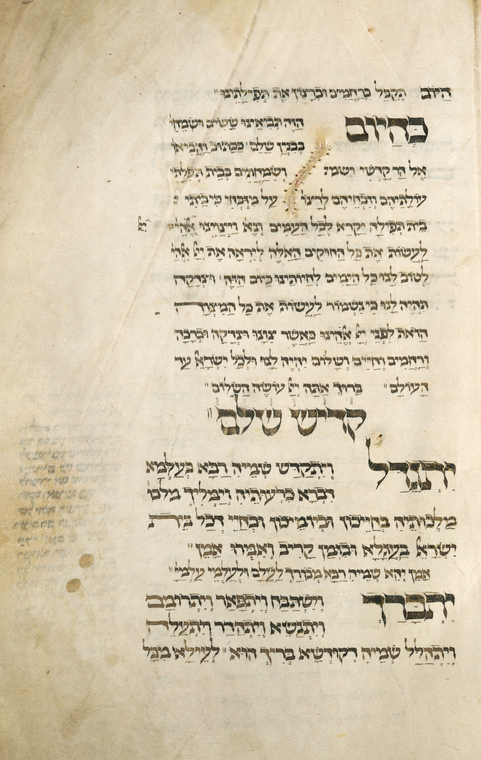 היום תקבל ברחמים וברצון את תפילתינו
כהיום הזה תביאינו ששים ושמחי
בבנין שלם ככתוב והביאו
אל הר קדשי ושמח ושמחתים בבית תפלתי
עולתיהם וזבחיהם לרצו על מזבחי כי ביתי
בית תפילה יקרא לכל העמים ונא ויצוינו
לעשות את כל החוקים האלה ליראה את
לטוב לנו כל הימים לחיותינו כיום הזה וצדקה
תהיה לנו כי נשמור לעשות את כל המצוה
הזאת לפני כאשר ציונו וצדקה וברכה
ורחמים וחיים ושלום יהיה לנו ולכל ישרא עד
העולם ברוך אתה עושה השלום
קדיש שלם
יתגדל ויתקדש שמייה רבא בעלמא
דברא כרעותיה וימליך מלכו
מלכותיה בחייכון וביומיכון ובחיי דכל בית
ישרא בעגלא ובזמן קריב ואמרו אמן
אמן יהא שמייה רבא מברך לעלם ולעלמי עלמיי
יתברך וישתבח ויתפאר ויתרומם
ויתנשא ויתהדר ויתעלה
ויתהלל שמייה דקודשא בריך הוא לעילא מכל